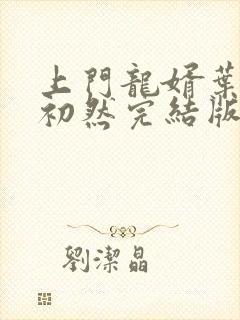 上門龍婿葉
初然完結版
劉潔晶